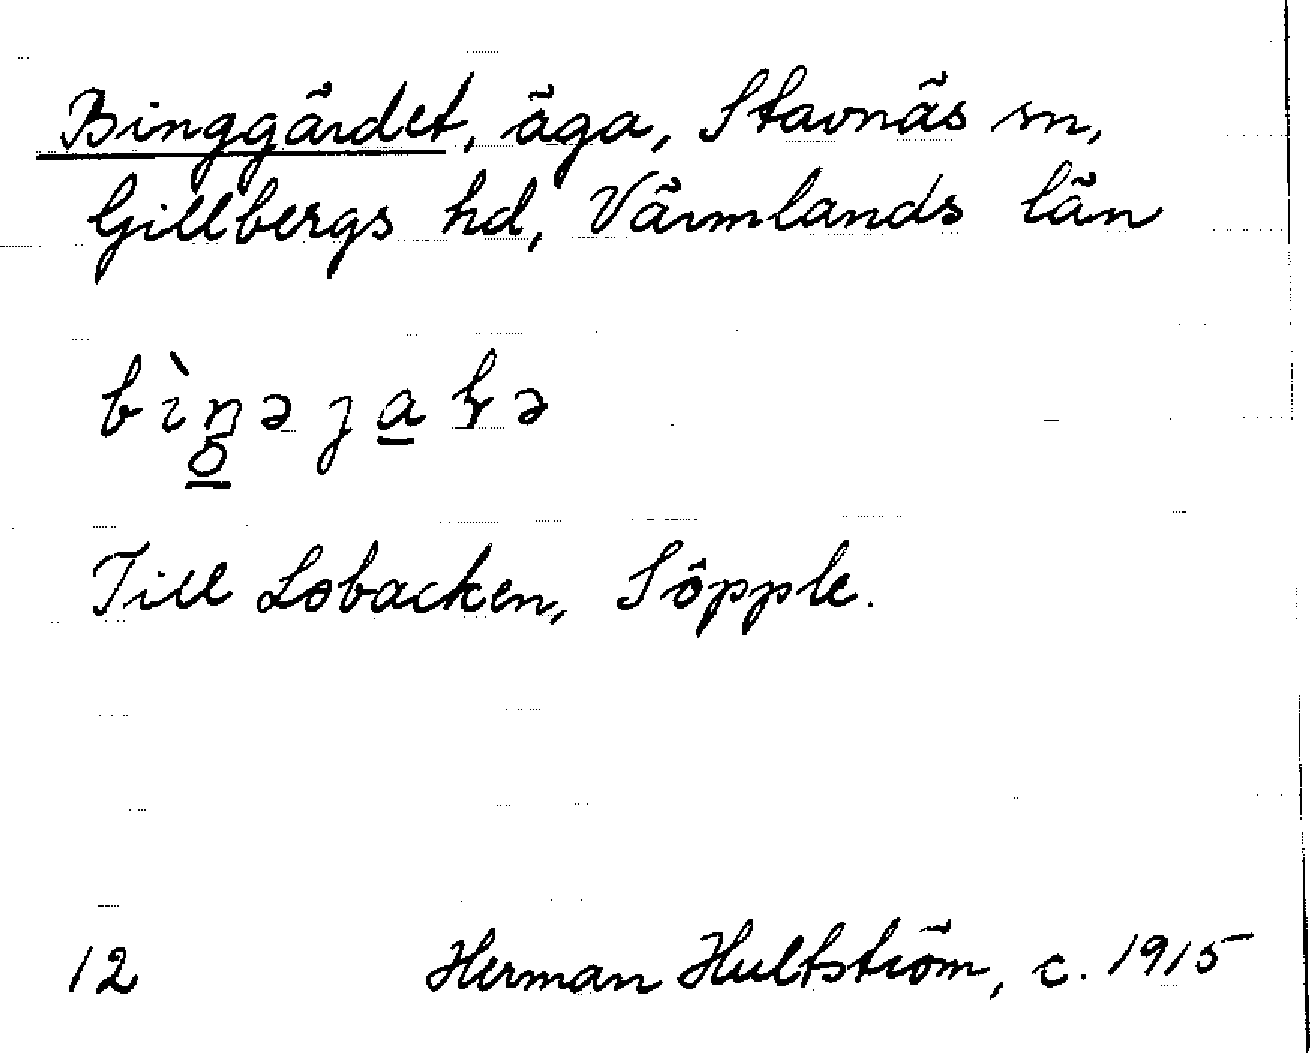 Binggärdet, äga, Stavnäs sn,
Gillbergs hd, Värmlands län
Till Lobacken, Söpple.
12 Herman Hultström, c. 1915